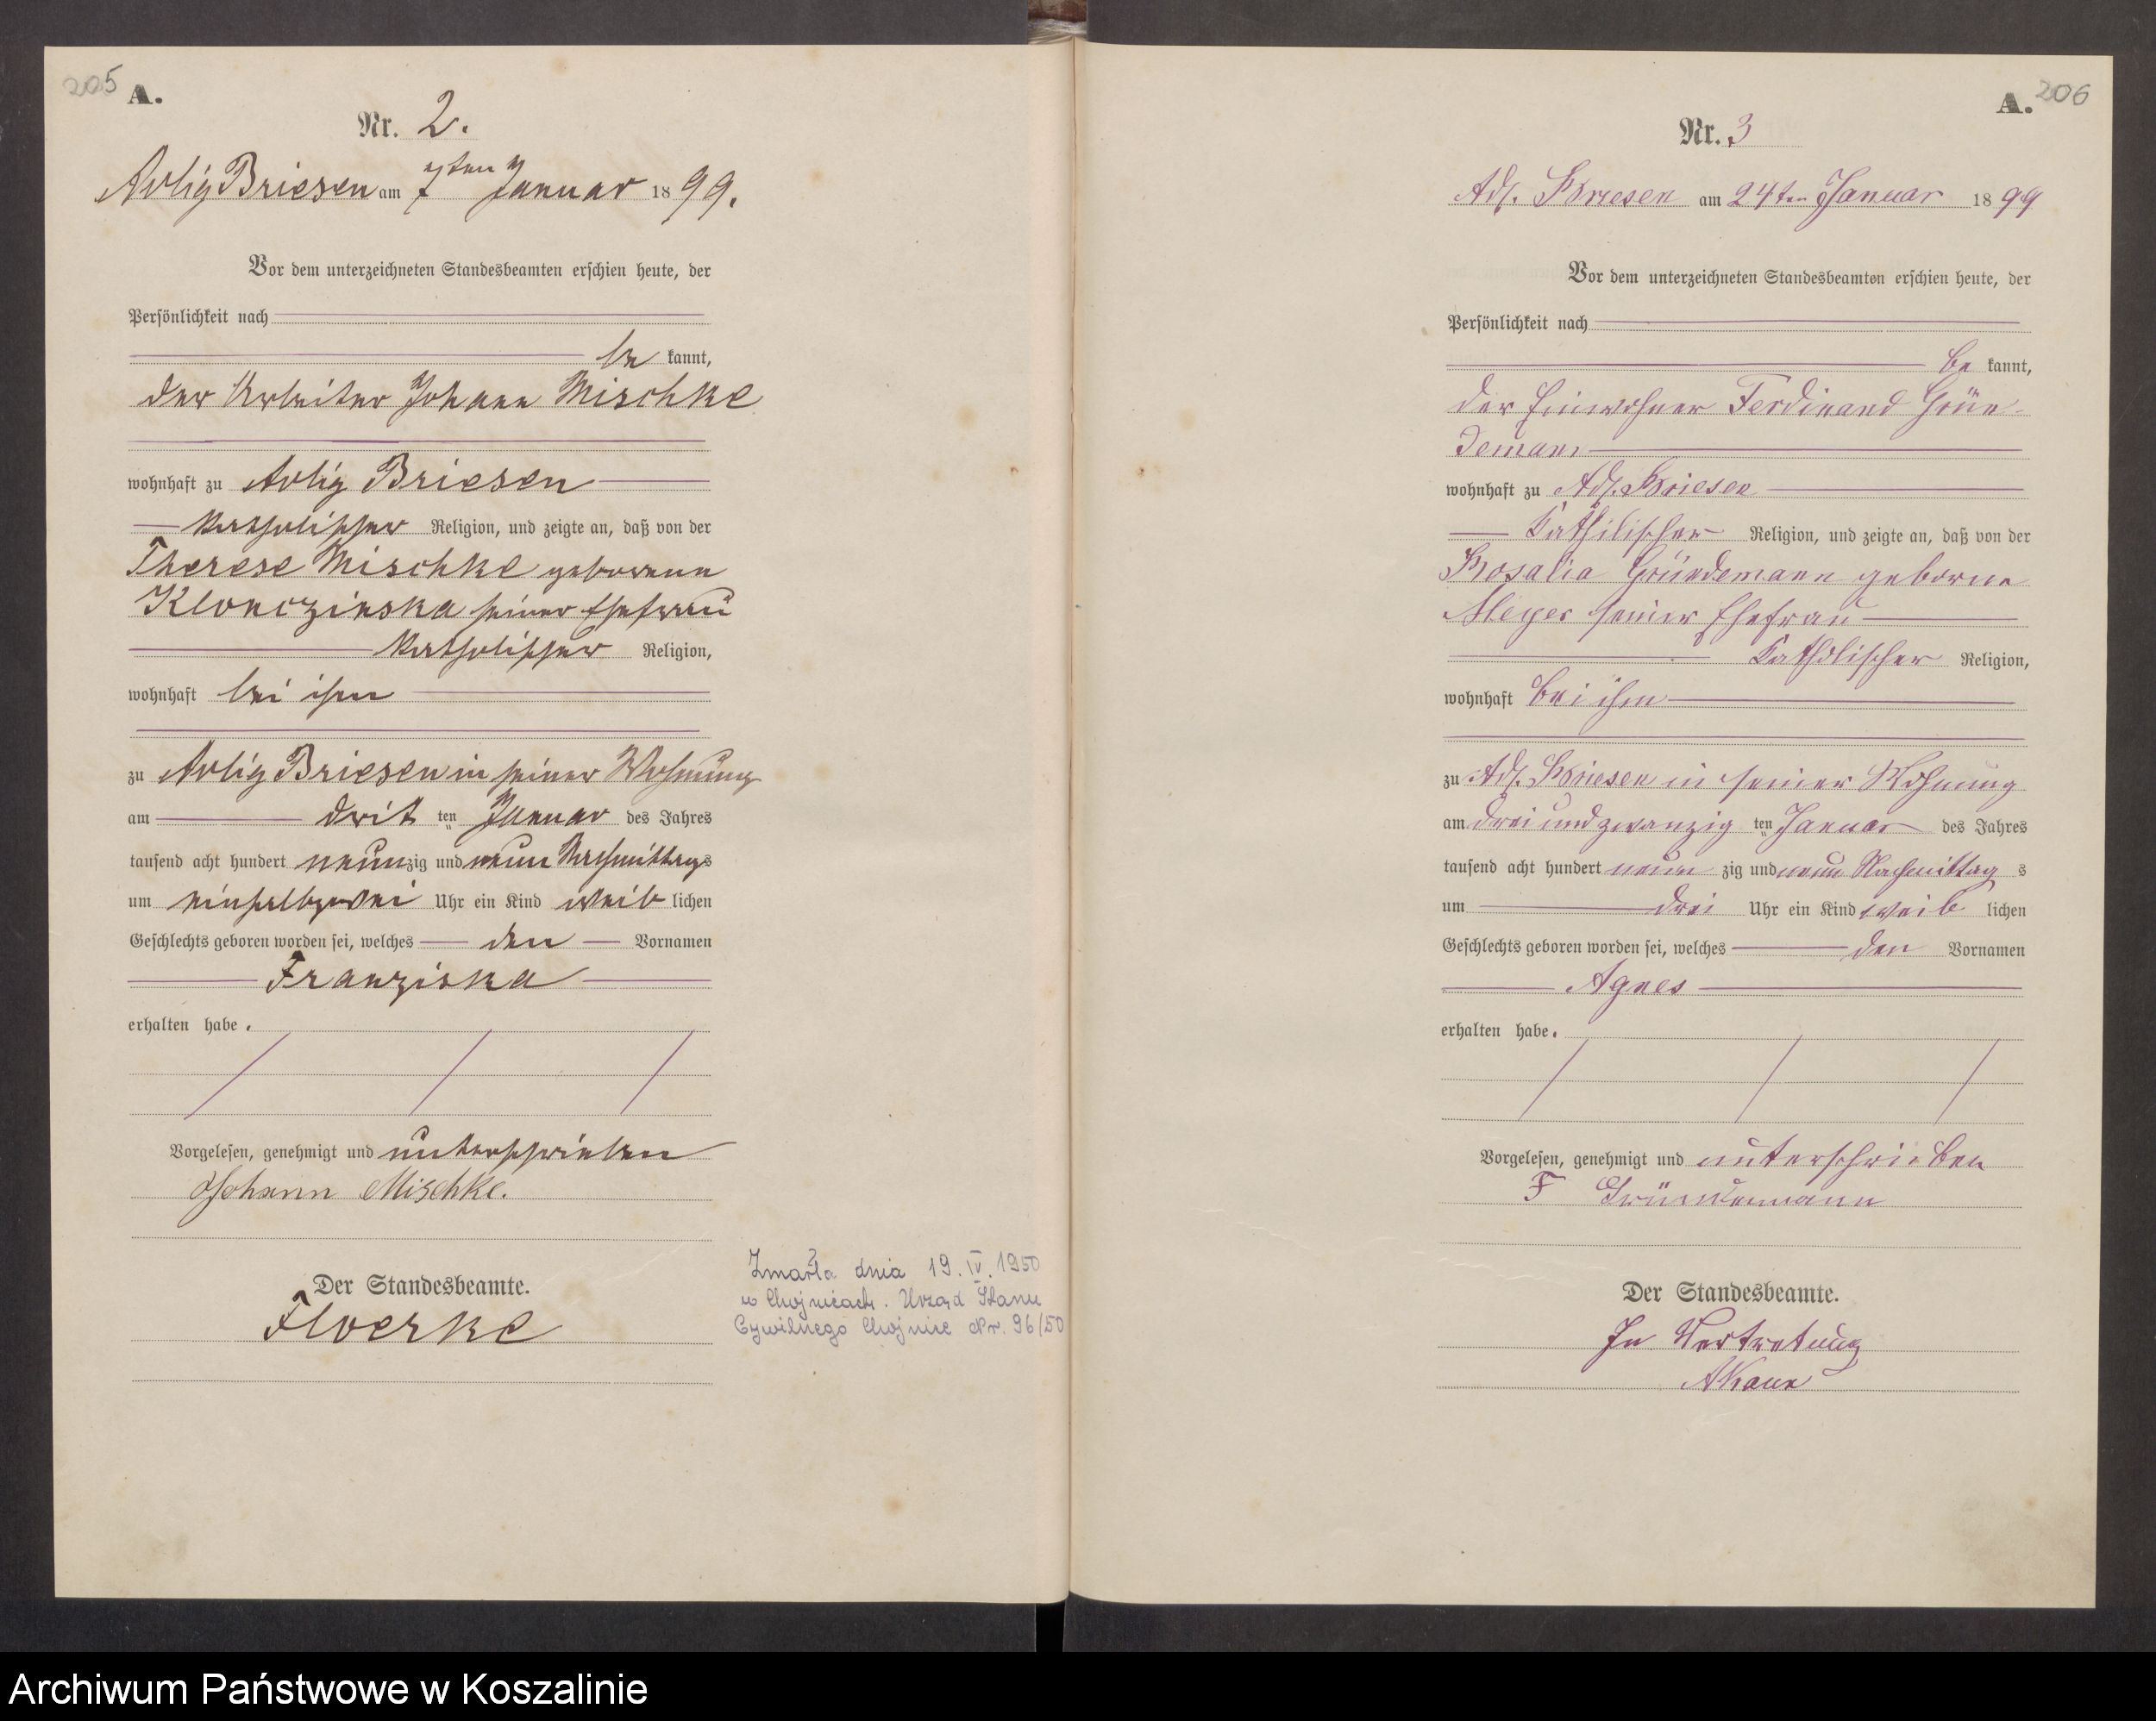 205
A.
Nr. 2.
Adlig Briesen am 7ten Januar 1899.
Vor dem unterzeichneten Standesbeamten erschien heute, der
Persönlichkeit nach
be kannt,
der Arbeiter Johann Mischke
wohnhaft zu Adlig Briesen
katholischer Religion, und zeigte an, daß von der
Therese Mischke geborenen
Klonczinska seiner Ehefrau
katholischer Religion,
wohnhaft bei ihm
zu Adlig Briesen in seiner Wohnung
am drit ten Januar des Jahres
tausend acht hundert neunzig und neun Nachmittags
um einhalbzwei Uhr ein Kind weib lichen
Geschlechts geboren worden sei, welches den Vornamen
Franziska
erhalten habe.
Vorgelesen, genehmigt und unterschrieben
Johann Mischke.
Der Standesbeamte.
Floerke
Zmarła dnia 19. IV. 1950
w Chojnicach. Urząd Stanu
Cywilnego Chojnice Nr. 96/50
206
A.
Nr. 3
Adl. Briesen am 24ten Januar 1899
Vor dem unterzeichneten Standesbeamten erschien heute, der
Persönlichkeit nach
be kannt,
der Einwohner Ferdinand Grün-
demann
wohnhaft zu Adl. Briesen
Katholischer Religion, und zeigte an, daß von der
Rosalia Gründemann geborne
Meyer seiner Ehefrau
Katholischer Religion,
wohnhaft bei ihm
zu Adl. Briesen in seiner Wohnung
am drei und zwanzig ten Januar des Jahres
tausend acht hundert neun zig und neun Nachmittag s
um drei Uhr ein Kind weib lichen
Geschlechts geboren worden sei, welches den Vornamen
Agnes
erhalten habe.
Vorgelesen, genehmigt und unterschrieben
F Gründemann
Der Standesbeamte.
In Vertretung
Archiwum Państwowe w Koszalinie